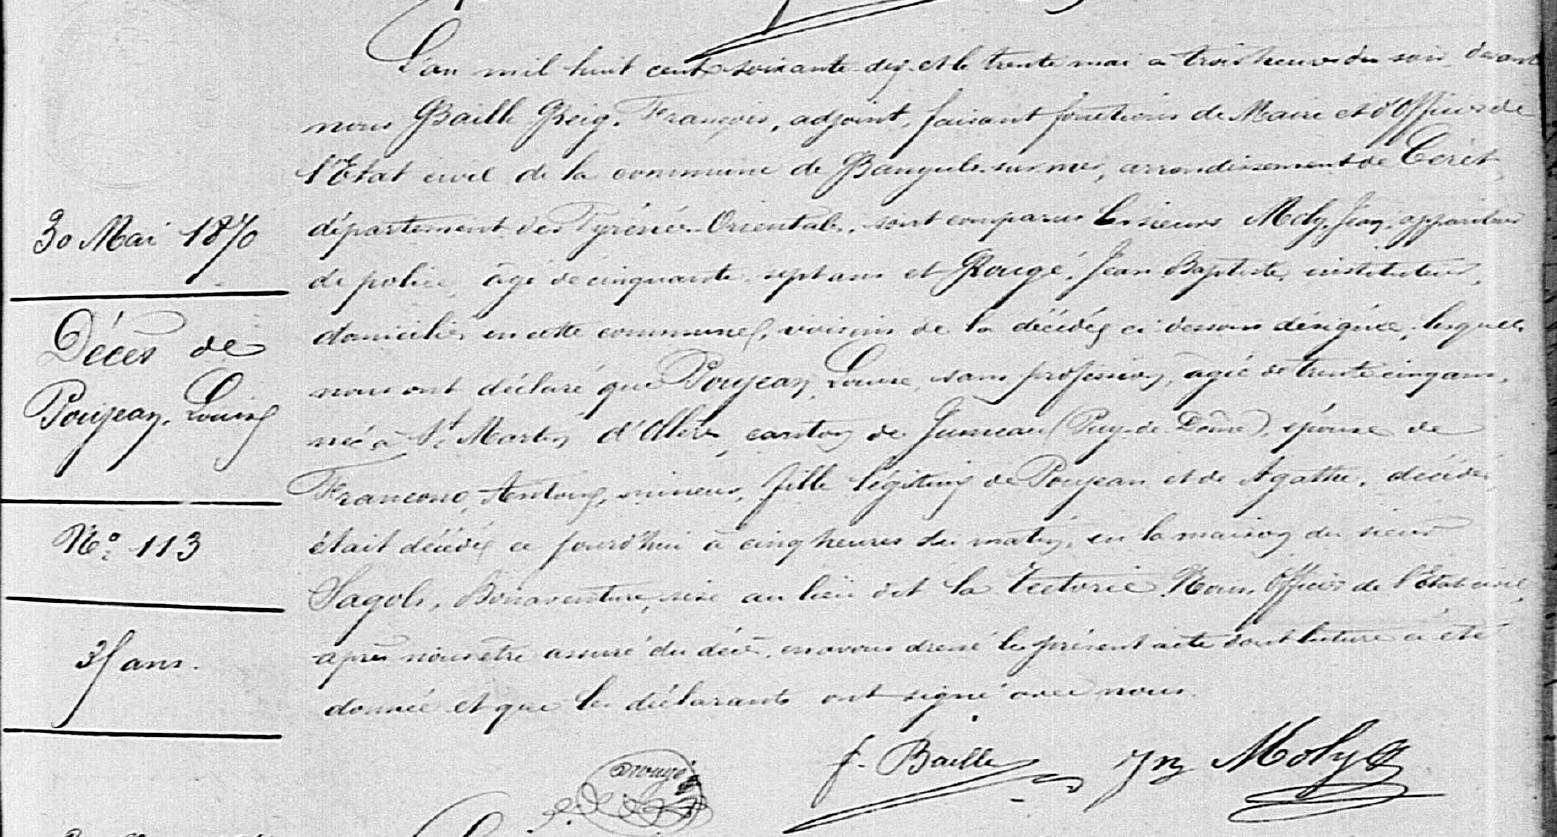 L'an mil huit cent soixante dix et le trente mai à trois heures du soir, devant
nous Baille Reig, François, adjoint, faisant fonctions de Maire et d'Officier de
l'Etat civil de la commune de Banyuls-sur-mer, arrondissement de Céret,
30 Mai 1870
département des Pyrénées-Orientales, sont comparus les sieurs Moly, Jean, appariteur
de police, âgé de cinquante-sept ans et Rougé, Jean Baptiste, instituteur,
Décès de
domiciliés en cette commune, voisins de la décédée ci dessous désignée, lesquels
Poujean, Louise
nous ont déclaré que Poujean, Louise, sans profession, âgée de trente cinq ans,
née à St Martin d'Ollers, canton de Jumeau (Puy-de-Dôme), épouse de
Francone, Antoine, mineur, fille légitime de Poujean et de Agathe, décédés,
No 113
était décédée ce jourd'hui à cinq heures du matin, en la maison du sieur
Sagols, Bonaventure, sise au lieu dit la Rectorie. Nous, Officier de l'Etat civil,
35 ans.
après nous être assuré du décès, en avons dressé le présent acte dont lecture a été
donnée et que les déclarants ont signé avec nous.
Rougé
f. Baille
Jn Moly